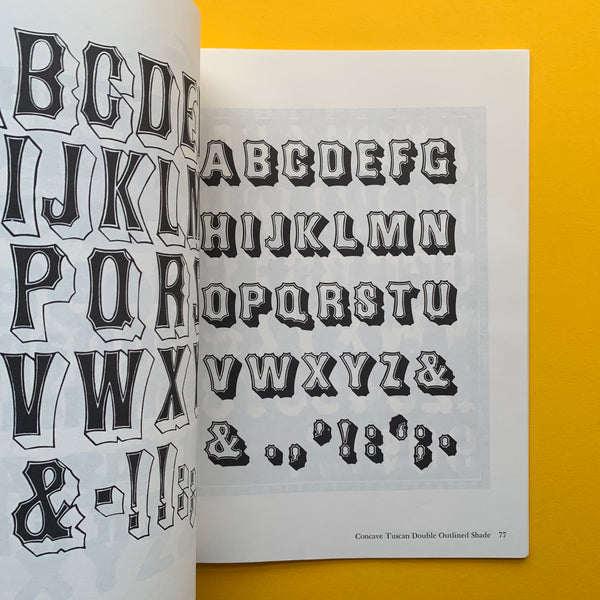 BCDE
IJKL
PQRS
VWX
&-!!:;
ABCDEFG
HIJKLMN
OPQRSTU
VWXYZ&
&.,’!:‘;·
Concave Tuscan Double Outlined Shade 77